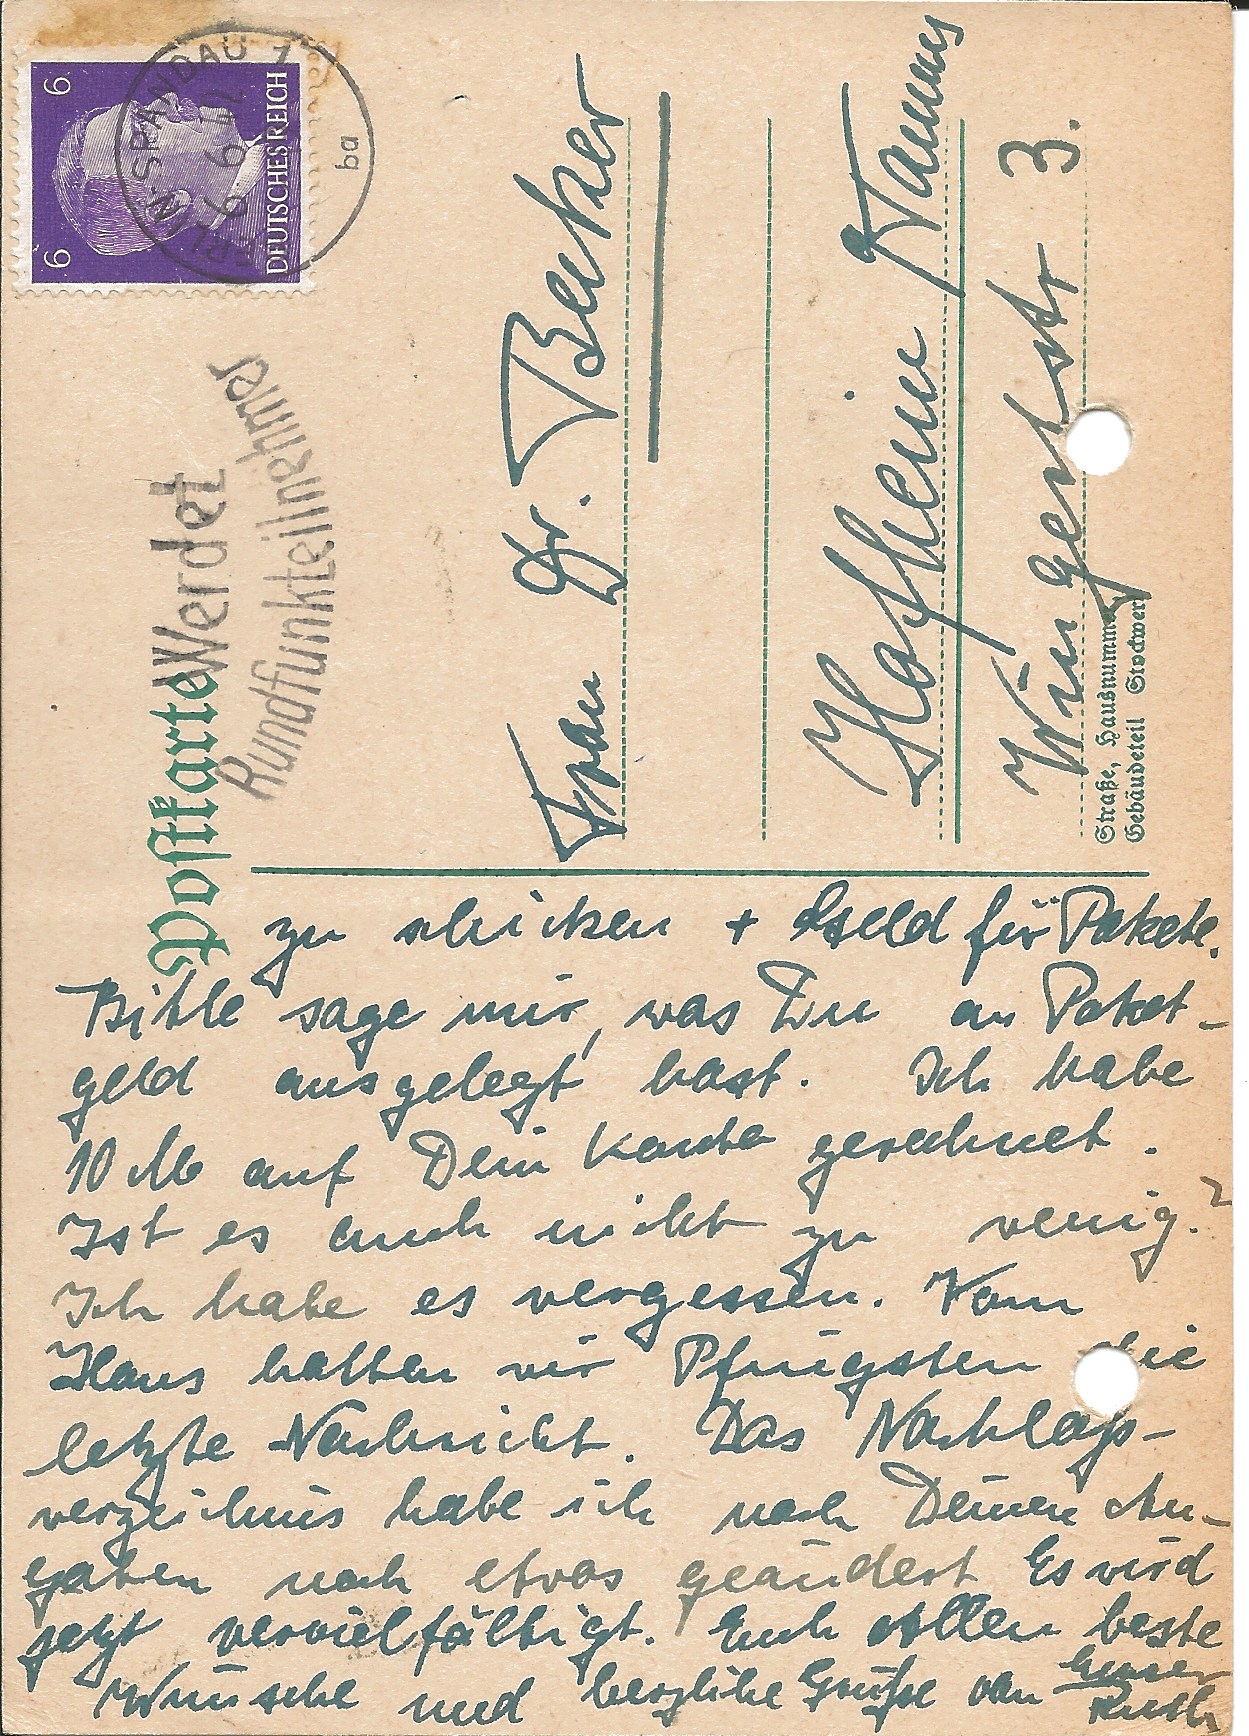 Postkarte
Werdet
Rundfunkteilnehmer
BERLIN-SPANDAU 1
ba
6 6
DEUTSCHES REICH
Frau Dr. Becker
Hofheim Taunus
Wingertstr 3.
Straße, Hausnummer
Gebäudeteil Stockwerk
zu schicken + Geld für Pakete.
Bitte sage mir, was Du an Paket-
geld ausgelegt hast. Ich habe
10 M auf Dein Konto gerechnet.
Ist es auch nicht zu wenig?
Ich habe es vergessen. Vom
Haus hatten wir Pfingsten die
letzte Nachricht. Das Nachlaß-
verzeichnis habe ich nach Deinen An-
gaben noch etwas geändert Es wird
jetzt vervielfältigt. Euch Allen beste
Wünsche und herzliche Grüße von Eurer
Ruth